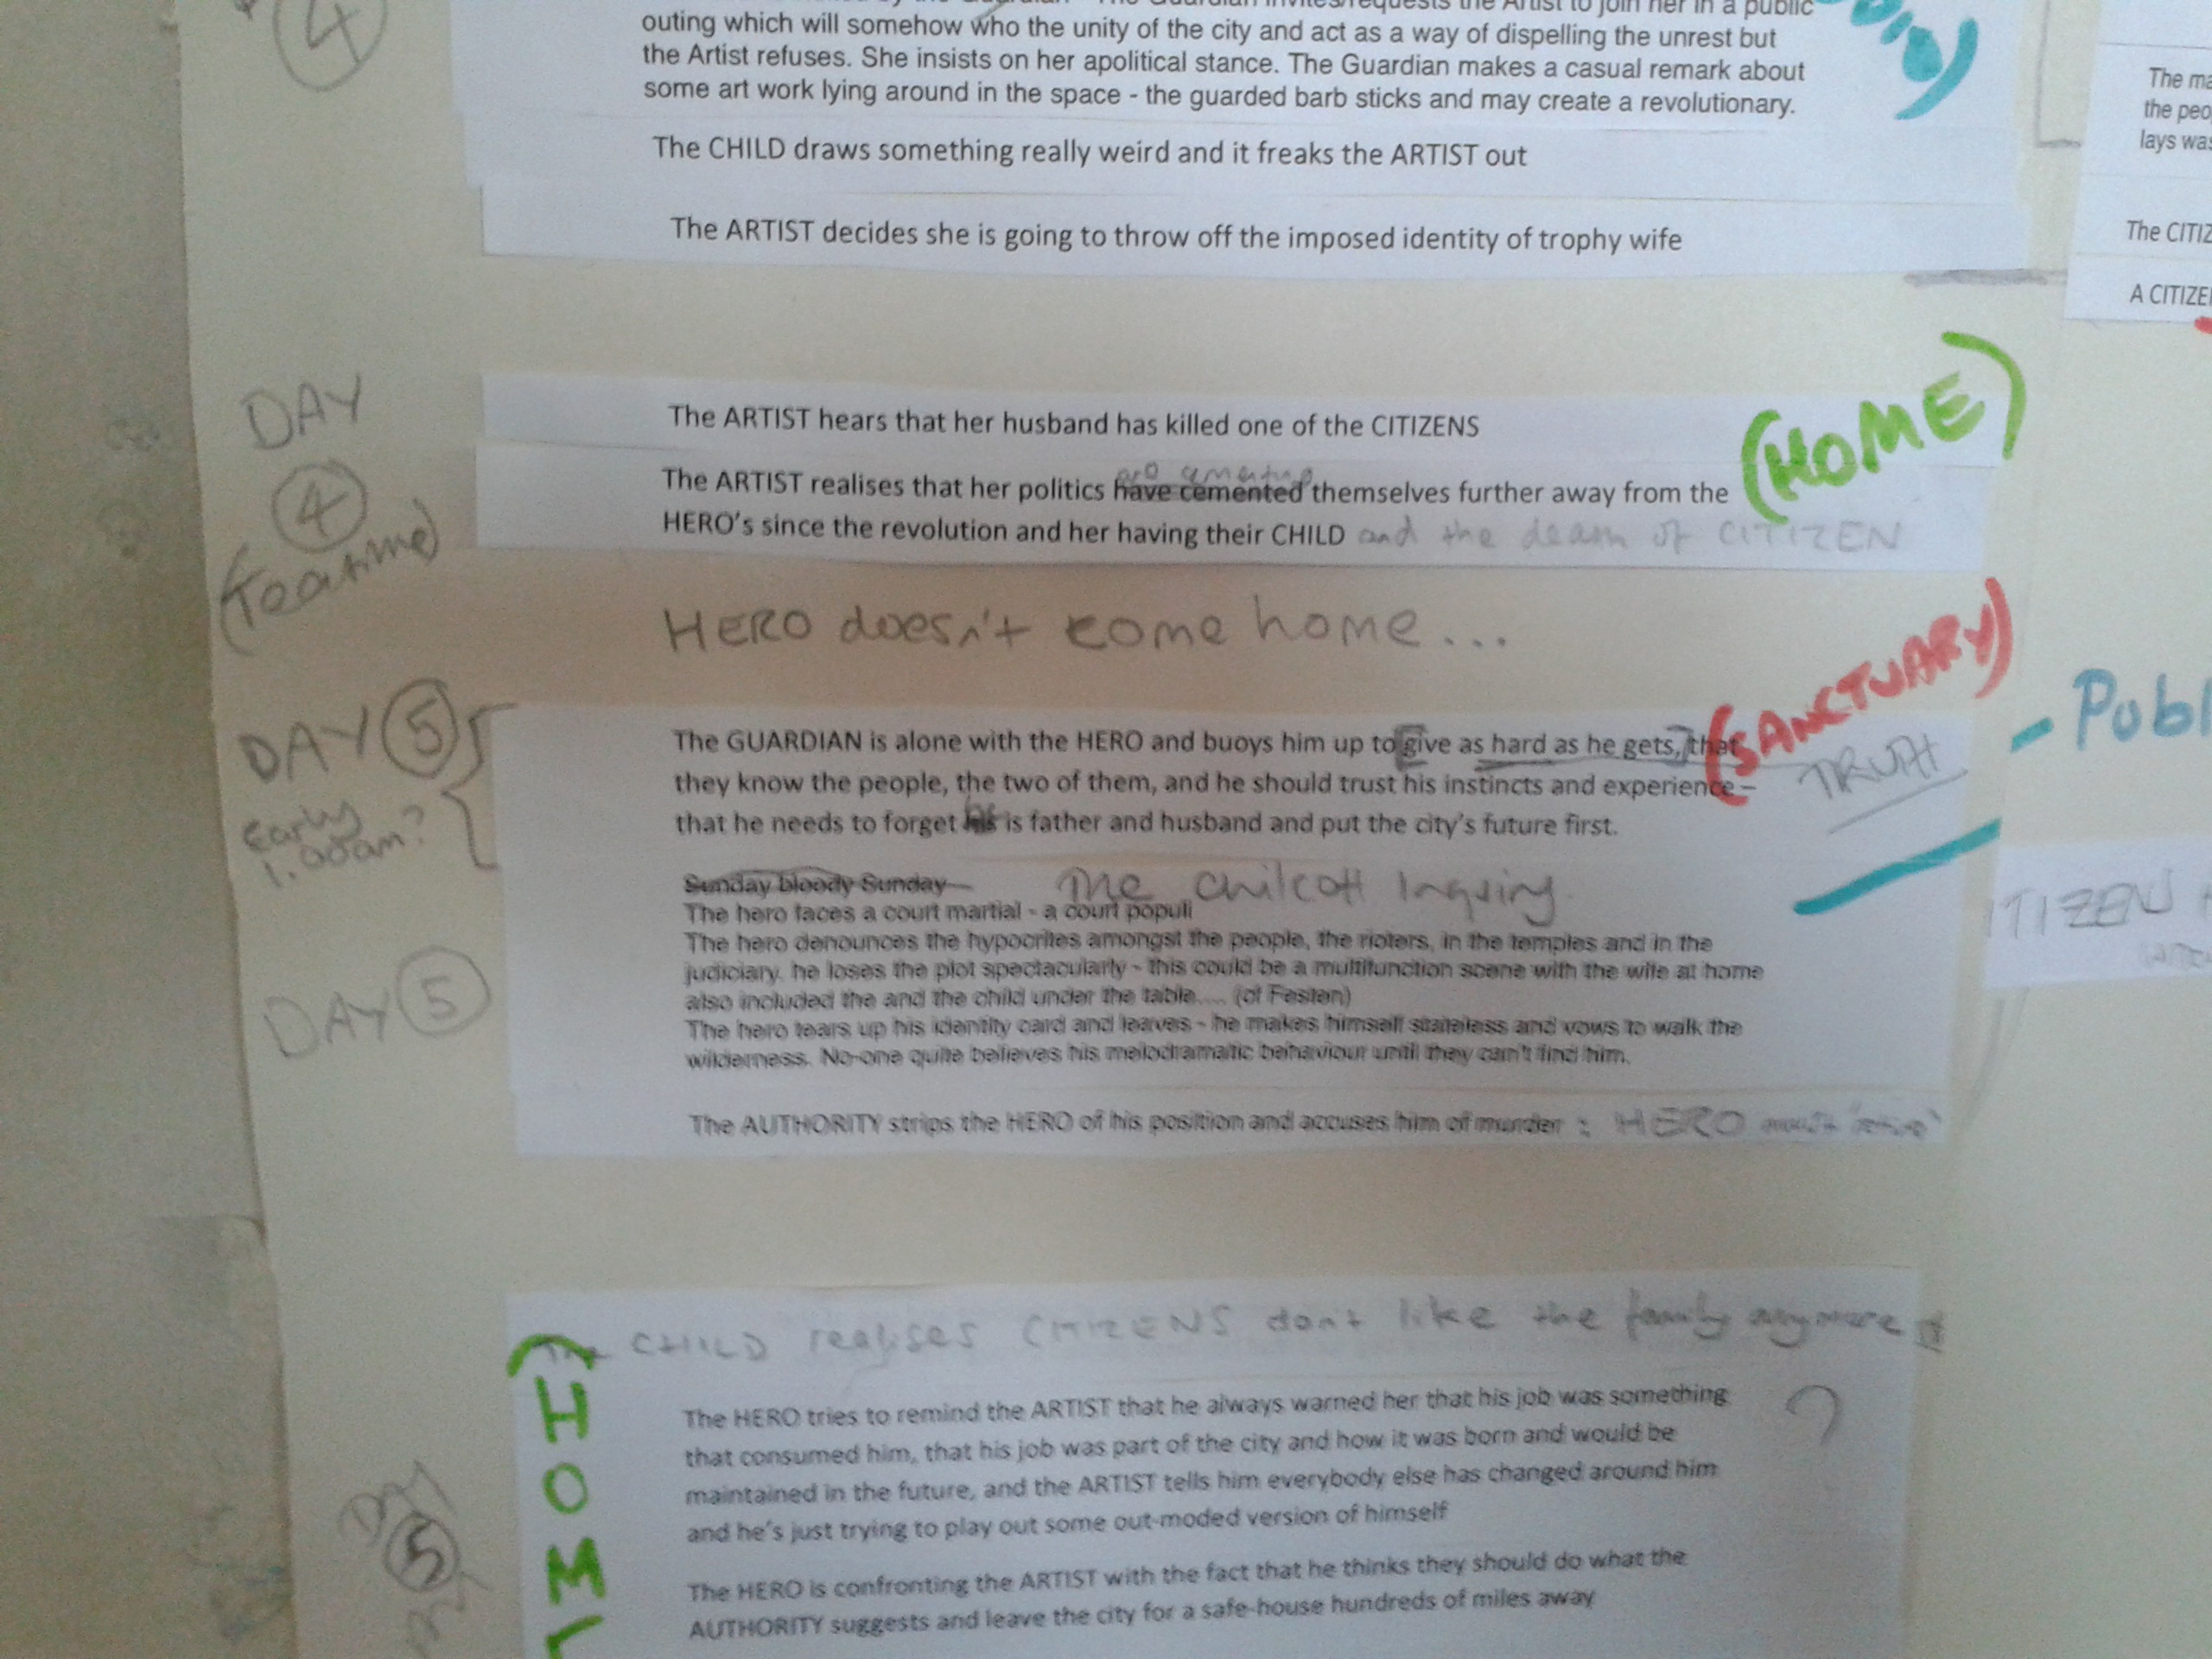 4
outing which will somehow who the unity of the city and act as a way of dispelling the unrest but
the Artist refuses. She insists on her apolitical stance. The Guardian makes a casual remark about
some art work lying around in the space - the guarded barb sticks and may create a revolutionary.
The CHILD draws something really weird and it freaks the ARTIST out
The ARTIST decides she is going to throw off the imposed identity of trophy wife
DAY
4
(Teatime)
The ARTIST hears that her husband has killed one of the CITIZENS
(HOME)
are cementing
The ARTIST realises that her politics have cemented themselves further away from the
HERO's since the revolution and her having their CHILD and the death of CITIZEN
HERO doesn't come home...
DAY 5
Early
1.00am?
(SANCTUARY)
TRUTH
The GUARDIAN is alone with the HERO and buoys him up to give as hard as he gets, that
they know the people, the two of them, and he should trust his instincts and experience –
that he needs to forget he is father and husband and put the city's future first.
- Publ
DAY 5
Sunday bloody Sunday The Chilcott Inquiry.
The hero faces a court martial - a court populi
The hero denounces the hypocrites amongst the people, the rioters, in the temples and in the
judiciary. he loses the plot spectacularly - this could be a multifunction scene with the wife at home
also included the and the child under the table.... (of Festen)
The hero tears up his identity card and leaves - he makes himself stateless and vows to walk the
wilderness. No-one quite believes his melodramatic behaviour until they can't find him.
The AUTHORITY strips the HERO of his position and accuses him of murder : HERO
The CHILD realises CITIZENS don't like the family anymore
(HOM
DAY
5
The HERO tries to remind the ARTIST that he always warned her that his job was something
that consumed him, that his job was part of the city and how it was born and would be
maintained in the future, and the ARTIST tells him everybody else has changed around him
and he's just trying to play out some out-moded version of himself
?
The HERO is confronting the ARTIST with the fact that he thinks they should do what the
AUTHORITY suggests and leave the city for a safe-house hundreds of miles away
The ma
the peo
lays was
The CITIZ
A CITIZE
ITIZEN